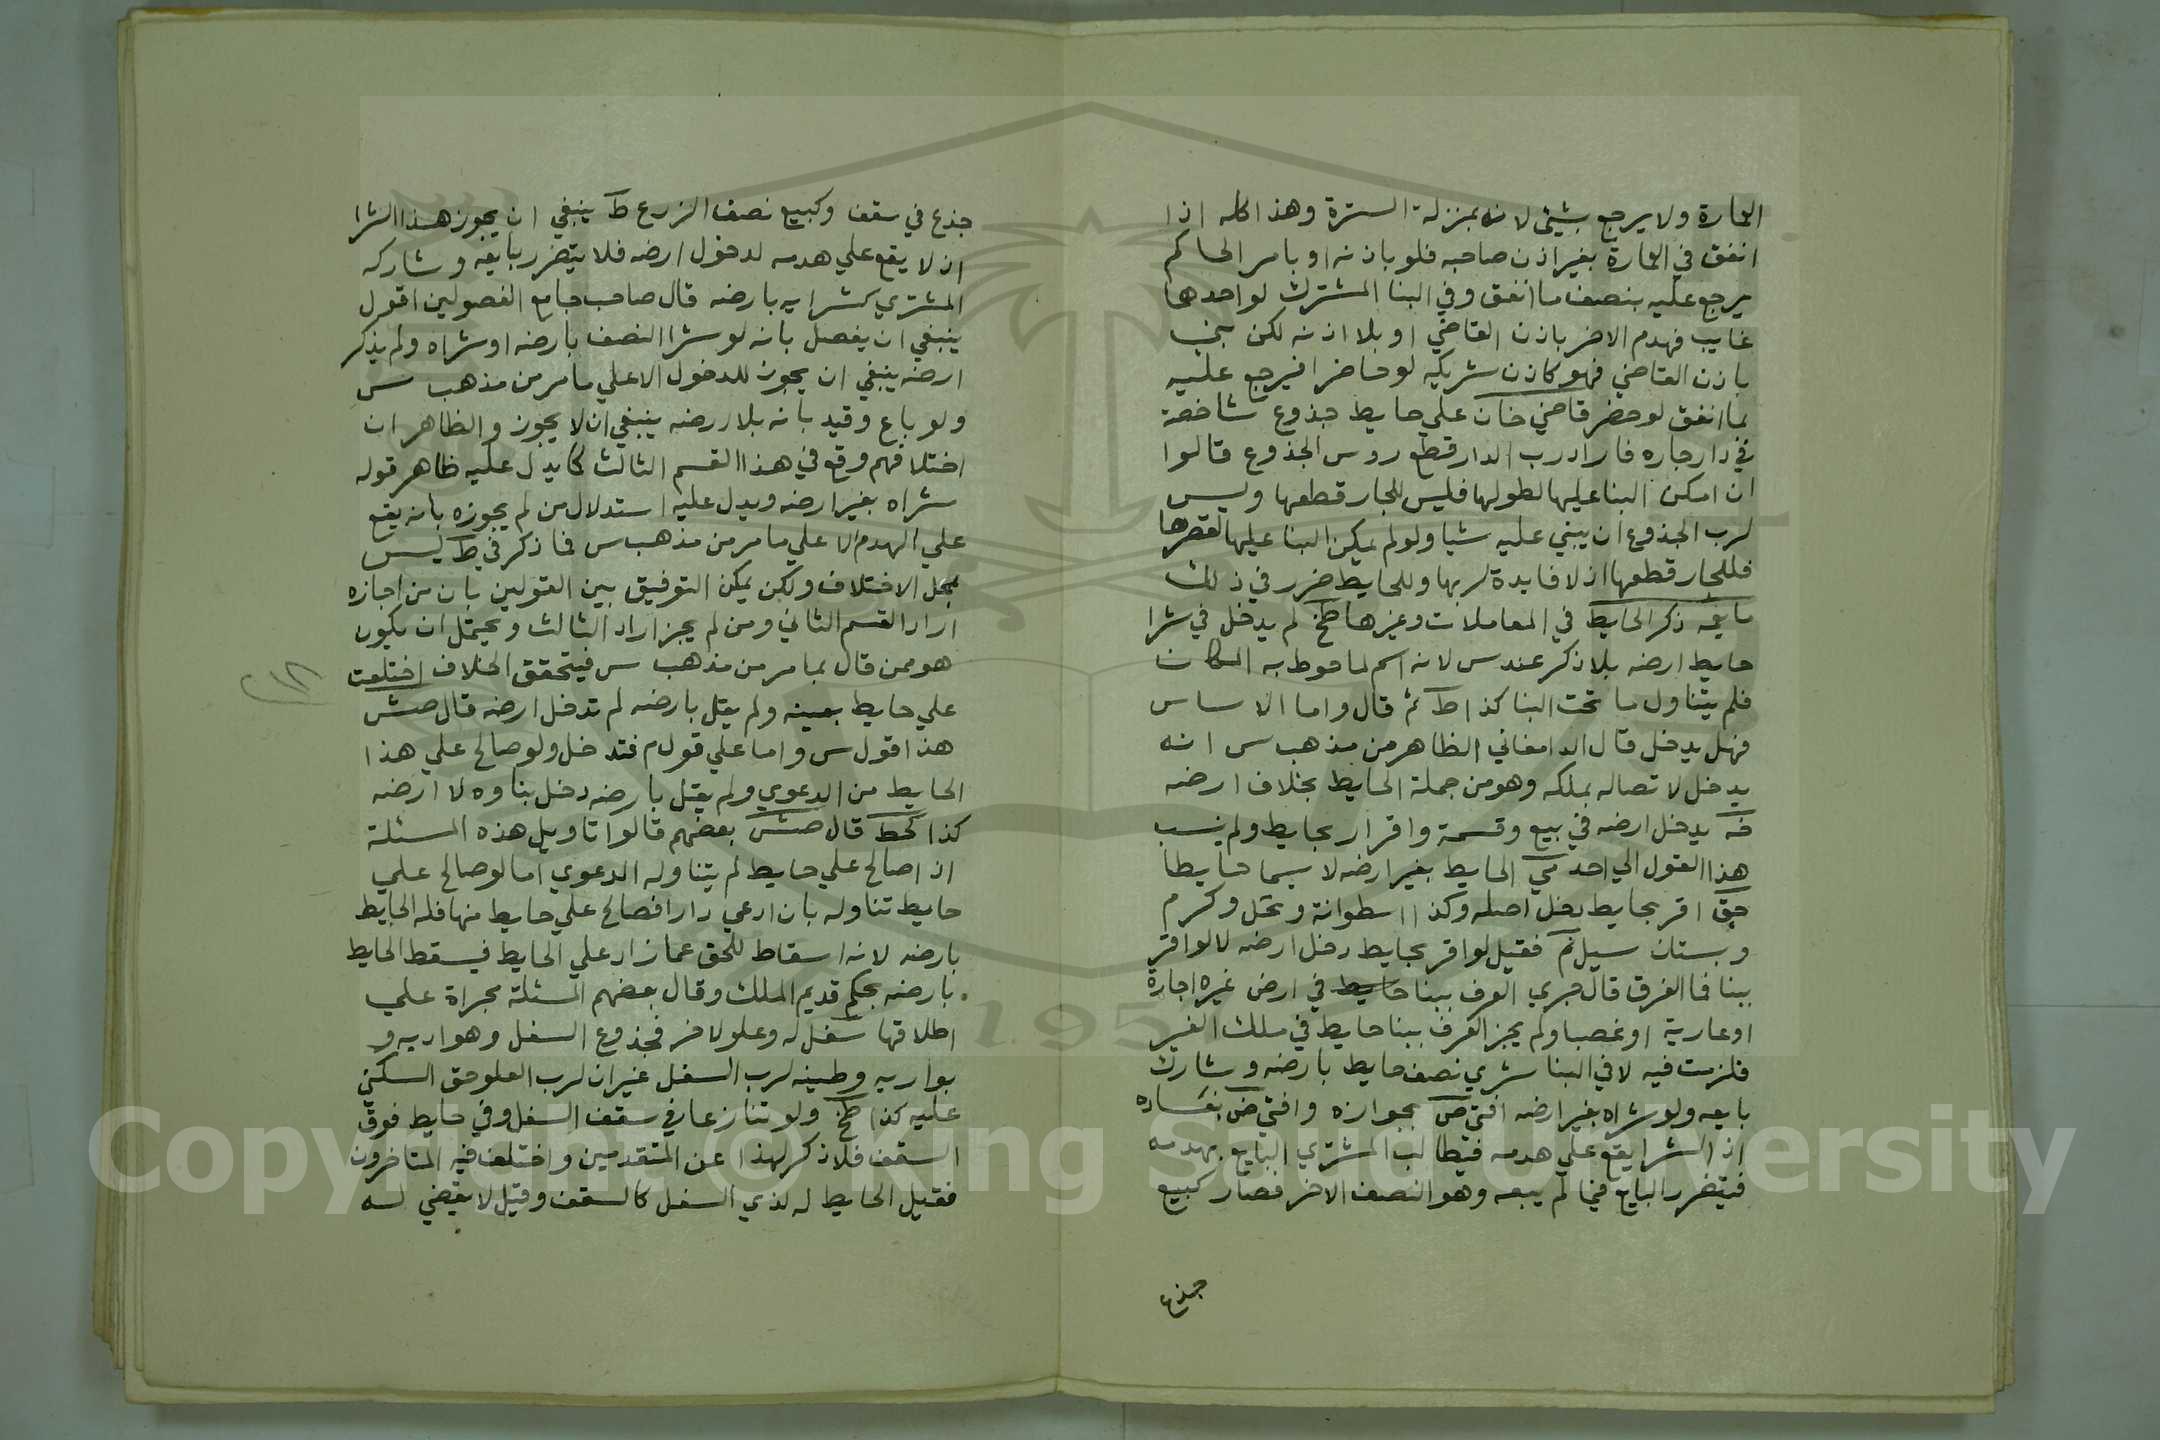 العمارة ولا يرجع بشيئ لانه بمنزلة السترة وهذا كله اذا
انفق في العمارة بغير اذن صاحبه فلو باذنه او بامر الحاكم
يرجع عليه بنصف ما انفق وفي البنا المشترك لو احدهما
غايب فهدم الاخر باذن القاضي او بلا اذنه لكن بني
باذن القاضي فهو كاذن شريكه لو حاضرا فيرجع عليه
بما انفق لو حضر قاضي خان علي حايط جذوع شاخصة
في دار جاره فاراد رب الدار قطع روس الجذوع قالوا
ان امكن البنا عليها لطولها فليس للجار قطعها وليس
لرب الجذوع ان يبني عليه شيا ولو لم يمكن البنا عليها لقصرها
فللجار قطعها اذ لا فايدة لربها وللحايط ضرر في ذلك
ذكر الحايط في المعاملات وغيرها طخ لم يدخل في شرا
حايط ارضه بلا ذكر عند س لانه اسم لما حوط به المكان
فلم يتناول ما تحت البنا كذا ط ثم قال واما الاساس
فهل يدخل قال الدامغاني الظاهر من مذهب س انه
يدخل لاتصاله بملكه وهو من جملة الحايط بخلاف ارضه
يدخل ارضه في بيع وقسمة واقرار بحايط ولم ينسب
هذا القول الي احد الحايط بغير ارضه لا سيما حايطا
اقر بحايط دخل اصله وكذا اسطوانة ونخل وكرم
وبستان سيل فقيل لو اقر بحايط دخل ارضه لا لو اقر
ببنا فما الفرق قال جري العرف ببنا حايط في ارض غيره اجارة
او عارية او غصبا ولم يجز العرف ببنا حايط في ملك الغير
فلزمت فيه لا في البنا شري نصف حايط بارضه وشارك
بايعه ولو شراه بغير ارضه افتي ص بجوازه وافتي ض بفساده
اذ الشرا يقع علي هدمه فيطالب المشتري البايع بهدمه
فيتضرر البايع فيما لم يبعه وهو النصف الاخر فصار كبيع
جذع
جذع في سقف وكبيع نصف الزرع ط ينبغي ان يجوز هذا الشرا
اذ لا يقع علي هدمه لدخول ارضه فلا يتضرر بايعه وشاركه
المشتري كشرايه بارضه قال صاحب جامع الفصولين اقول
ينبغي ان يفصل بانه لو شرا النصف بارضه او شراه ولم يذكر
ارضه ينبغي ان يجوز للدخول الا علي ما مر من مذهب س
ولو باع وقيد بانه بلا ارضه ينبغي ان لا يجوز والظاهر ان
اختلافهم وقع في هذا القسم الثالث كما يدل عليه ظاهر قوله
شراه بغير ارضه ويدل عليه استدلال من لم يجوزه بانه يقع
علي الهدم الا علي ما مر من مذهب س فما ذكر في ط ليس
بمحل الاختلاف ولكن يمكن التوفيق بين القولين بان من اجازه
اراد القسم الثاني ومن لم يجز اراد الثالث ويحتمل ان يكون
هو ممن قال بما مر من مذهب س فيتحقق الخلاف اختلعت
علي حايط بعينه ولم يقل بارضه لم تدخل ارضه قال صش
هذا قول س واما علي قول م فتدخل ولو صالح علي هذا
الحايط من الدعوي ولم يقل بارضه دخل بناوه لا ارضه
كذا كحط قال صش بعضهم قالوا تاويل هذه المسئلة
اذا صالح علي حايط لم يتناوله الدعوي اما لو صالح علي
حايط تناوله بان ادعي دارا فصالح علي حايط منها فله الحايط
بارضه لانه اسقاط للحق عما زاد علي الحايط فيسقط الحايط
بارضه بحكم قديم الملك وقال بعضهم المسئلة مجراة علي
اطلاقها سفل له وعلو لاخر فجذوع السفل وهواديه و
بواريه وطينه لرب السفل غير ان لرب العلو حق السكني
عليه كذا طخ ولو تنازعا في سقف السفل وفي حايط فوق
السقف فلا ذكر لهذا عن المتقدمين واختلف فيه المتاخرون
فقيل الحايط له لذي السفل كالسقف وقيل لا يقضي له